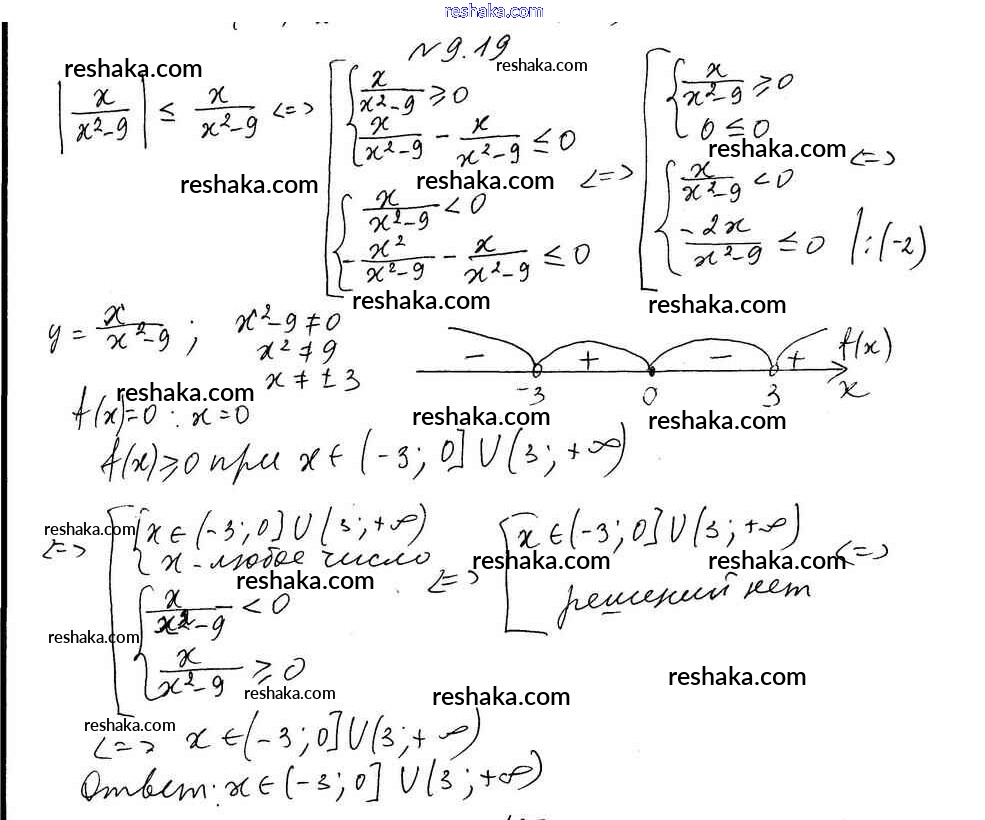 reshaka.com
№ 9.19
reshaka.com reshaka.com
|x/(x²-9)| ≤ x/(x²-9) <=> [ { x/(x²-9) ≥ 0 ; x/(x²-9) - x/(x²-9) ≤ 0 ; { x/(x²-9) < 0 ; -x²/(x²-9) - x/(x²-9) ≤ 0 <=> [ { x/(x²-9) ≥ 0 ; 0 ≤ 0 ; { x/(x²-9) < 0 ; -2x/(x²-9) ≤ 0 |:(-2) <=>
reshaka.com
reshaka.com reshaka.com
reshaka.com reshaka.com
y = x/(x²-9) ; x²-9 ≠ 0
x² ≠ 9
x ≠ ±3
- + - + f(x)
-3 0 3 x
reshaka.com
f(x)=0 : x=0
reshaka.com reshaka.com
f(x) ≥ 0 при x ∈ (-3; 0] ∪ (3; +∞)
reshaka.com
<=> [ { x ∈ (-3; 0] ∪ (3; +∞) ; x - любое число ; { x/(x²-9) < 0 ; x/(x²-9) ≥ 0 <=> [ x ∈ (-3; 0] ∪ (3; +∞) ; решений нет <=>
reshaka.com reshaka.com reshaka.com
reshaka.com
reshaka.com reshaka.com reshaka.com
reshaka.com
<=> x ∈ (-3; 0] ∪ (3; +∞)
reshaka.com
Ответ: x ∈ (-3; 0] ∪ (3; +∞)